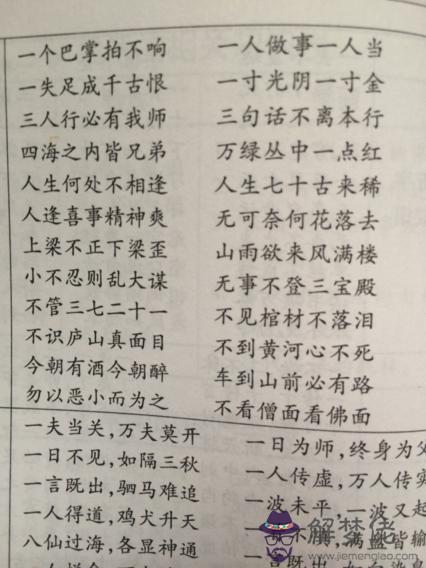 一个巴掌拍不响
一人做事一人当
一失足成千古恨
一寸光阴一寸金
三人行必有我师
三句话不离本行
四海之内皆兄弟
万绿丛中一点红
人生何处不相逢
人生七十古来稀
人逢喜事精神爽
无可奈何花落去
上梁不正下梁歪
山雨欲来风满楼
小不忍则乱大谋
无事不登三宝殿
不管三七二十一
不见棺材不落泪
不识庐山真面目
不到黄河心不死
今朝有酒今朝醉
车到山前必有路
勿以恶小而为之
不看僧面看佛面
一夫当关，万夫莫开
一日为师，终身为父
一日不见，如隔三秋
一人传虚，万人传实
一言既出，驷马难追
一波未平，一波又起
一人得道，鸡犬升天
满盘皆输
八仙过海，各显神通
www.jiemenglao.com